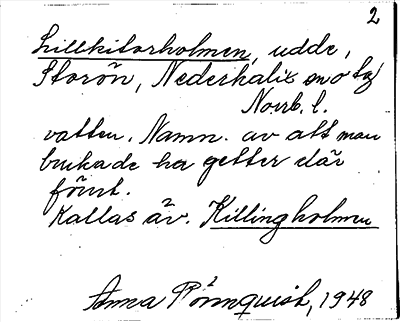 2
Lillkitorholmen, udde,
Storön, Nederkalix sn o tg
Norrb. l.
vatten. Namn. av att man
brukade ha getter där
förut.
Kallas äv. Killingholmen
Anna Rönnquist, 1948